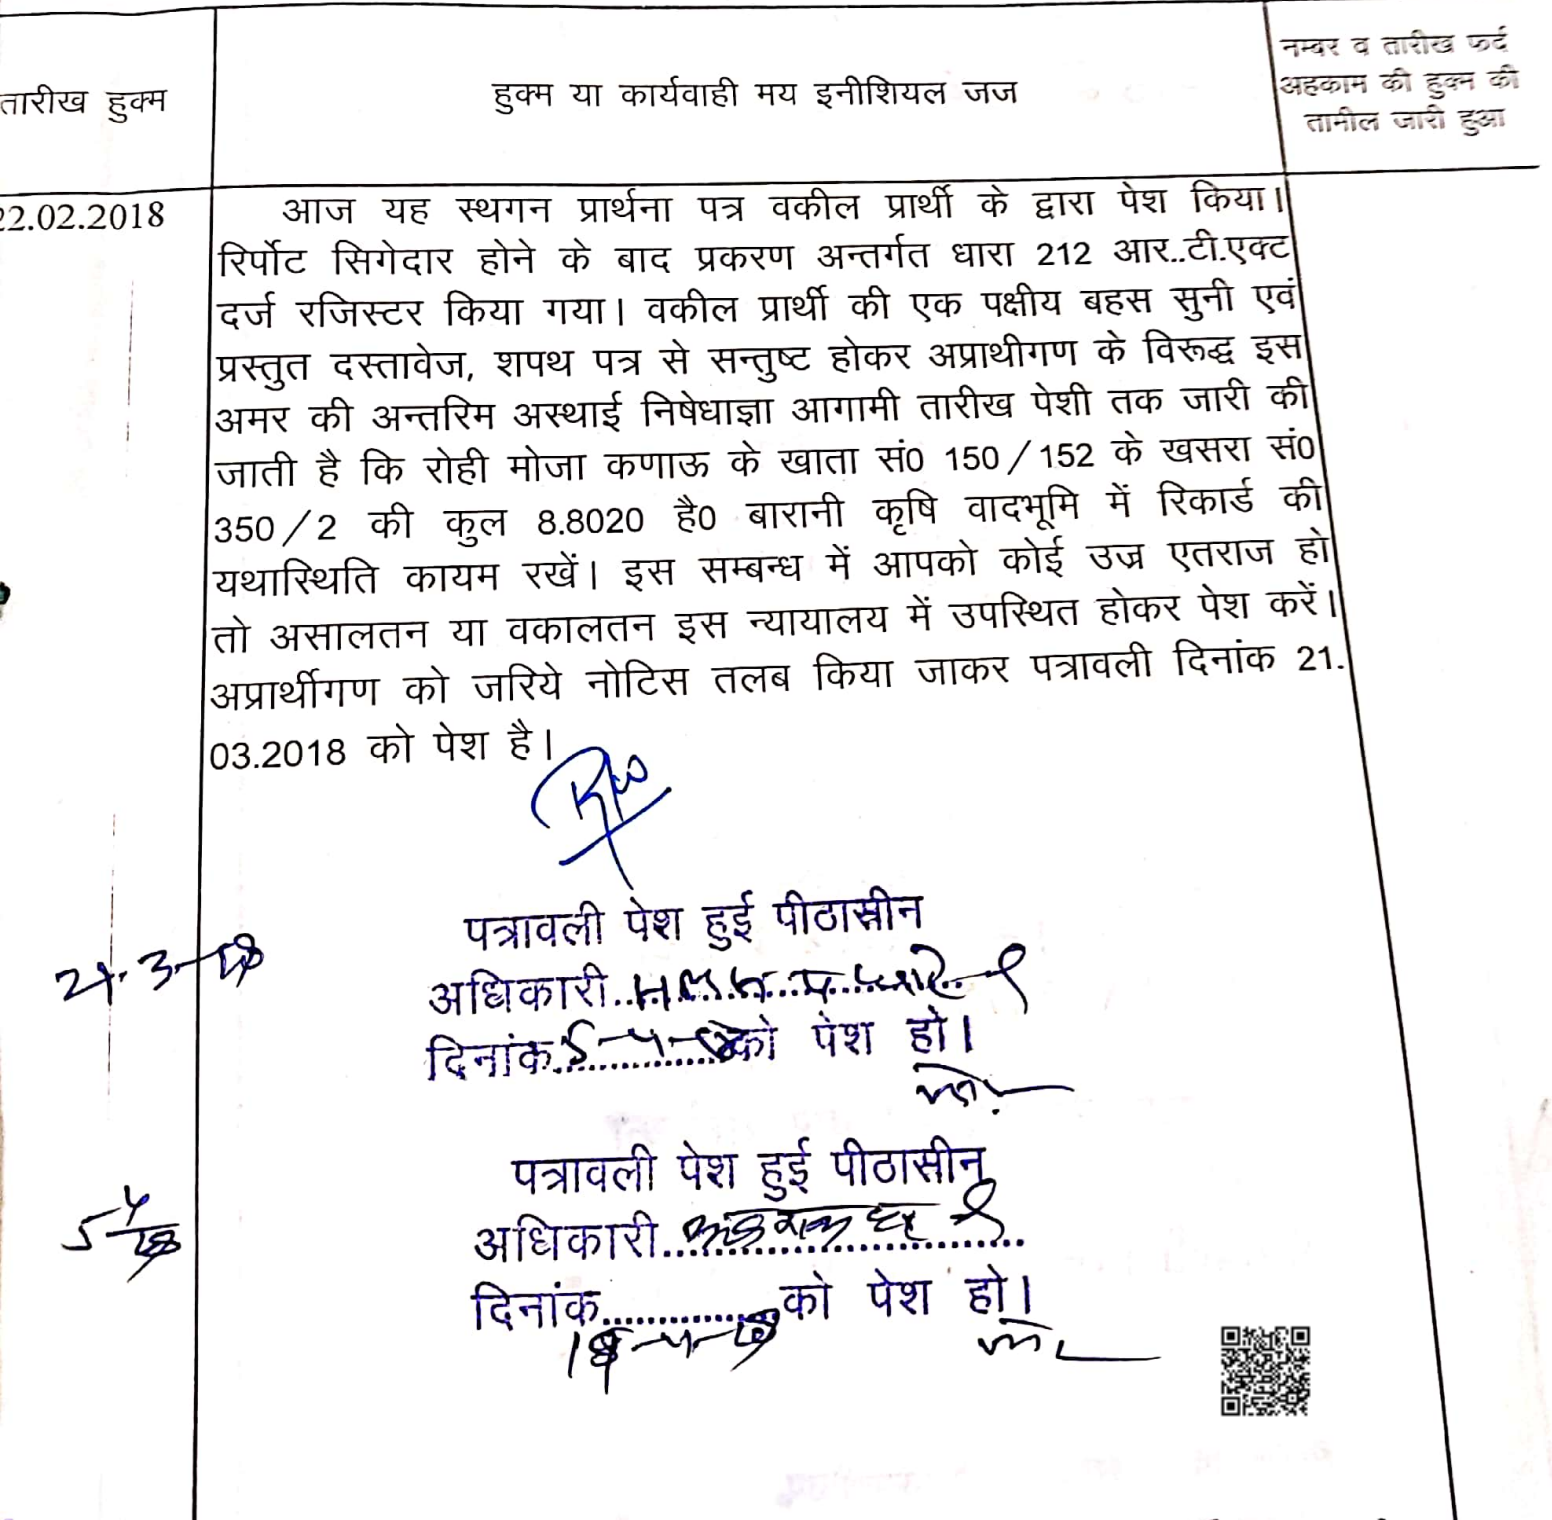 तारीख हुक्म
हुक्म या कार्यवाही मय इनीशियल जज
नम्बर व तारीख फर्द
अहकाम की हुक्म की
तामील जारी हुआ
22.02.2018
आज यह स्थगन प्रार्थना पत्र वकील प्रार्थी के द्वारा पेश किया।
रिर्पोट सिगेदार होने के बाद प्रकरण अन्तर्गत धारा 212 आर..टी.एक्ट
दर्ज रजिस्टर किया गया। वकील प्रार्थी की एक पक्षीय बहस सुनी एवं
प्रस्तुत दस्तावेज, शपथ पत्र से सन्तुष्ट होकर अप्राथीगण के विरूद्ध इस
अमर की अन्तरिम अस्थाई निषेधाज्ञा आगामी तारीख पेशी तक जारी की
जाती है कि रोही मोजा कणाऊ के खाता सं0 150/152 के खसरा सं0
350/2 की कुल 8.8020 है0 बारानी कृषि वादभूमि में रिकार्ड की
यथास्थिति कायम रखें। इस सम्बन्ध में आपको कोई उज्र एतराज हो
तो असालतन या वकालतन इस न्यायालय में उपस्थित होकर पेश करें।
अप्रार्थीगण को जरिये नोटिस तलब किया जाकर पत्रावली दिनांक 21.
03.2018 को पेश है।
पत्रावली पेश हुई पीठासीन
21-3-18
अधिकारी
दिनांक 5-4-18 को पेश हो।
पत्रावली पेश हुई पीठासीन
5-4-18
अधिकारी
दिनांक को पेश हो।
18-4-18